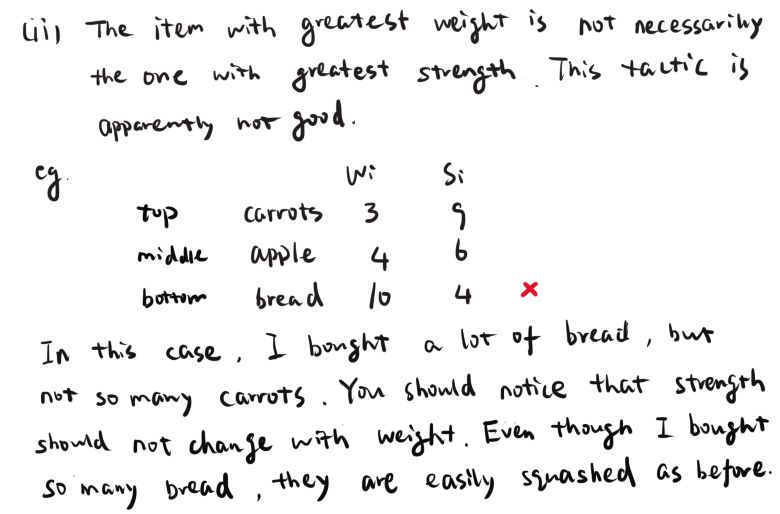 (ii) The item with greatest weight is not necessarily
the one with greatest strength. This tactic is
apparently not good.
eg. Wi Si
top carrots 3 9
middle apple 4 6
bottom bread 10 4 ×
In this case, I bought a lot of bread, but
not so many carrots. You should notice that strength
should not change with weight. Even though I bought
so many bread, they are easily squashed as before.